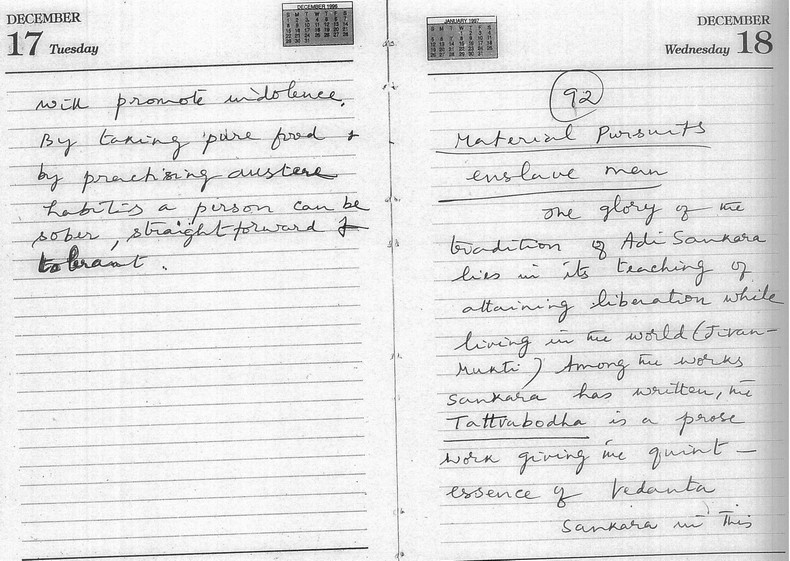 DECEMBER
17 Tuesday
DECEMBER 1996
will promote indolence.
By taking pure food &
by practising austere
habits a person can be
sober, straightforward &
tolerant.
JANUARY 1997
DECEMBER
Wednesday 18
92
Material Pursuits
enslave man
The glory of the
tradition of Adi Sankara
lies in its teaching of
attaining liberation while
living in the world (Jivan-
Mukti) Among the works
Sankara has written, the
Tattvabodha is a prose
work giving the quint-
essence of Vedanta
Sankara in This